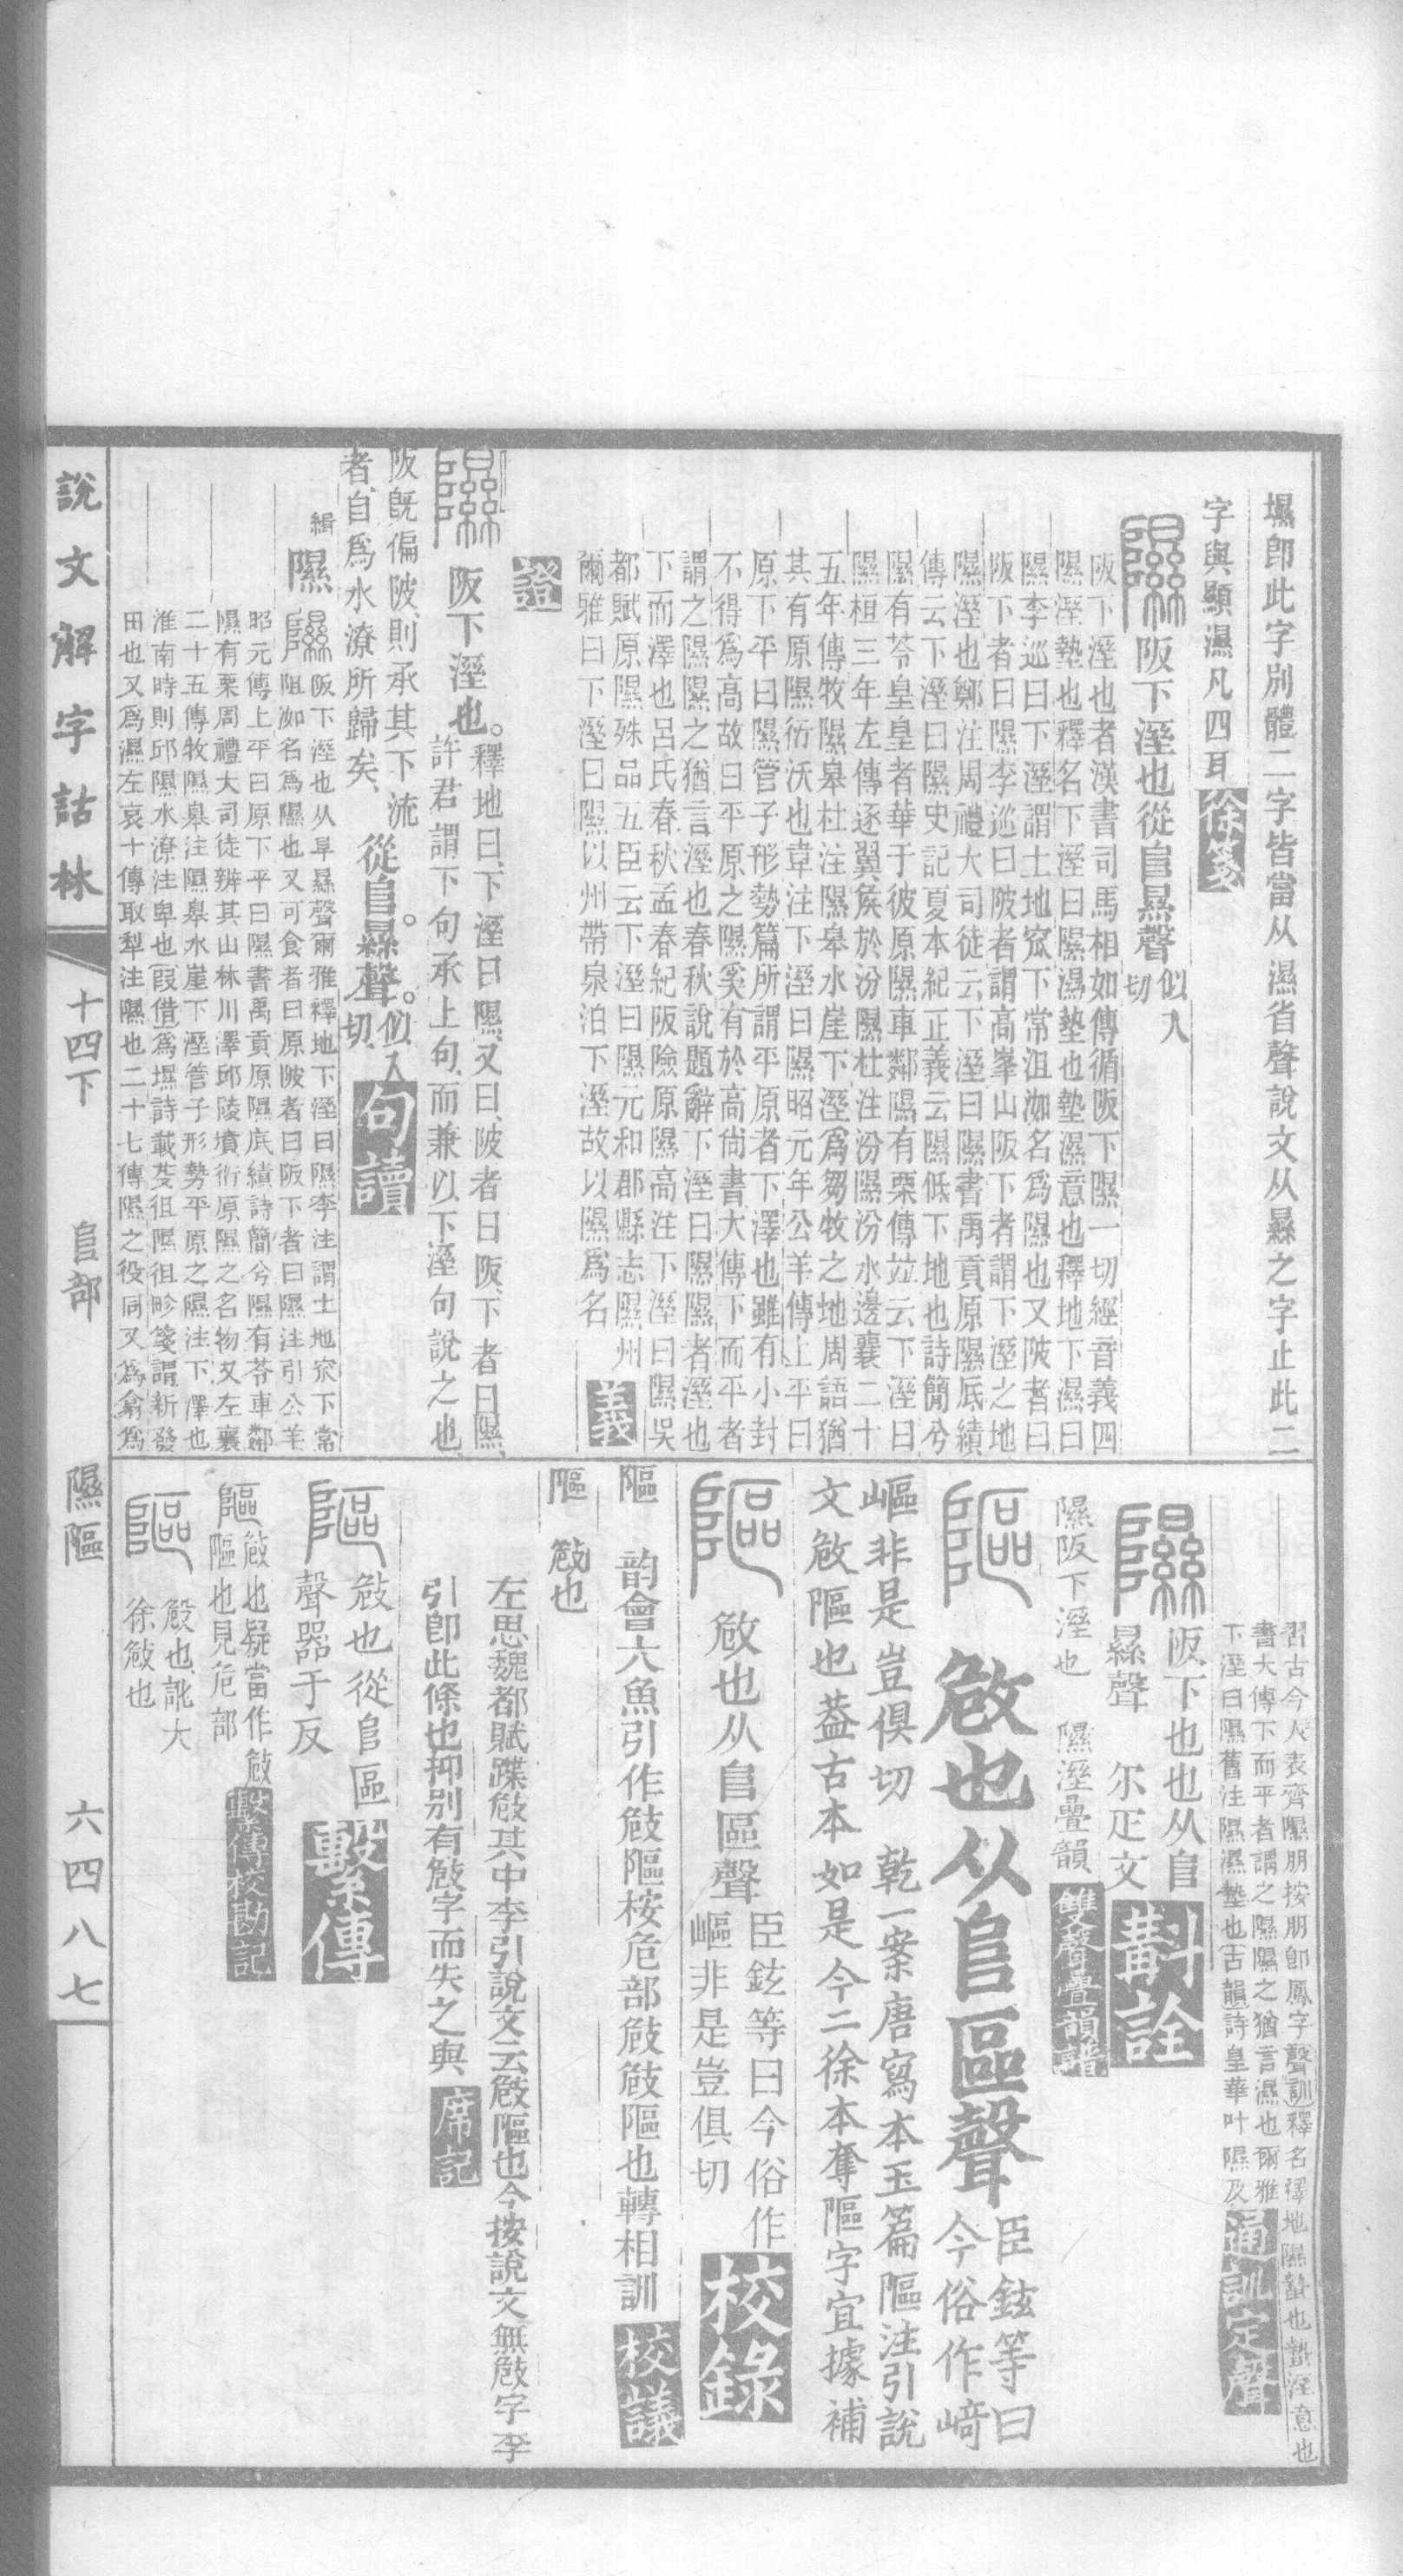 壖卽此字別體二字皆當从濕省聲說文从㬎之字止此二
字與顯濕凡四耳徐箋
隰阪下溼也從𨸏㬎聲似入切
阪下溼也者漢書司馬相如傳循阪下隰一切經音義四
隰溼墊也釋名下溼曰隰濕墊也墊濕意也釋地下濕曰
隰李巡曰下溼謂土地窊下常沮洳名爲隰也又陂者曰
阪下者曰隰李巡曰陂者謂高峯山阪下者謂下溼之地
隰溼也鄭注周禮大司徒云下溼曰隰書禹貢原隰底績
傳云下溼曰隰史記夏本紀正義云隰低下地也詩簡兮
隰有苓皇皇者華于彼原隰車鄰隰有栗傳竝云下溼曰
隰桓三年左傳逐翼侯於汾隰杜注汾隰汾水邊襄二十
五年傳牧隰皋杜注隰皋水崖下溼爲芻牧之地周語猶
其有原隰衍沃也韋注下溼曰隰昭元年公羊傳上平曰
原下平曰隰管子形勢篇所謂平原者下澤也雖有小封
不得爲高故曰平原之隰奚有於高尙書大傳下而平者
謂之隰隰之猶言溼也春秋說題辭下溼曰隰隰者溼也
下而澤也呂氏春秋孟春紀阪險原隰高注下溼曰隰吳
都賦原隰殊品五臣云下溼曰隰元和郡縣志隰州
爾雅曰下溼曰隰以州帶泉泊下溼故以隰爲名義
證
隰阪下溼也。釋地曰、下溼曰隰、又曰、陂者曰阪、下者曰隰、
許君謂下句承上句、而兼以下溼句說之也、
阪旣偏陂、則承其下流
者、自爲水潦所歸矣、從𨸏。㬎聲。似入切、句讀
緝
隰隰阪下溼也从𨸏㬎聲爾雅釋地下溼曰隰李注謂土地窊下常
阻洳名爲隰也又可食者曰原陂者曰阪下者曰隰注引公羊
昭元傳上平曰原下平曰隰書禹貢原隰底績詩簡兮隰有苓車鄰
隰有栗周禮大司徒辨其山林川澤邱陵墳衍原隰之名物又左襄
二十五傳牧隰皋注隰皋水崖下溼管子形勢平原之隰注下澤也
淮南時則邱隰水潦注卑也叚借爲壖詩載芟徂隰徂畛箋謂新發
田也又爲濕左哀十傳取犁注隰也二十七傳隰之役同又爲翕爲
習古今人表齊隰朋按朋卽鳳字聲訓釋名釋地隰蟄也蟄溼意也
書大傳下而平者謂之隰隰之猶言濕也爾雅
下溼曰隰舊注隰濕墊也古韻詩皇華叶隰及通訓定聲
隰阪下也也从𨸏
㬎聲　尔疋文斠詮
隰阪下溼也　隰溼疊韻雙聲疊韻譜
䧢㪁也从𨸏區聲臣鉉等曰今俗作﨑
嶇非是豈俱切　乾一案唐寫本玉篇䧢注引說
文㪁䧢也葢古本如是今二徐本奪䧢字宜據補
䧢㪁也从𨸏區聲臣鉉等曰今俗作
嶇非是豈俱切校錄
䧢　韵會六魚引作㩻䧢桉危部㩻㩻䧢也轉相訓校議
䧢　㩻也
左思魏都賦蹀㪁其中李引說文云㩻䧢也今按說文無㩻字李
引卽此條也抑別有㩻字而失之與席記
䧢㩻也從𨸏區
聲器于反繫傳
䧢㪁也疑當作㩻
䧢也見危部繫傳校勘記
䧢㱾也、訛、大
徐㩻也
說文解字詁林　十四下　𨸏部　隰䧢　六四八七